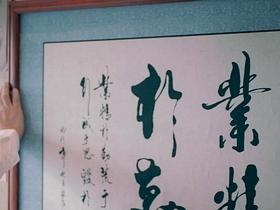 業精
於勤
業精於勤荒于
行成于思毀於